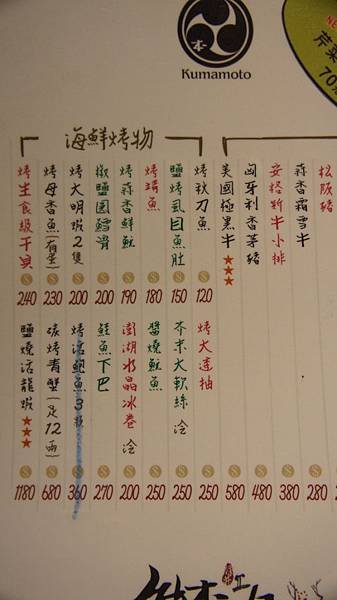 本
Kumamoto
NEW
芹菜
70元
海鮮烤物
松阪豬
280
蒜香霜雪牛
380
安格斯牛小排
480
匈牙利香草豬
580
美國極黑牛★★★
烤秋刀魚
120
鹽烤虱目魚肚
150
烤鯖魚
180
烤蒜香鮮魷
190
椒鹽圓鱈滑
200
烤大明蝦2隻
200
烤母香魚(有蛋)
230
烤生食級干貝
240
烤大透抽
250
芥末大軟絲 冷
250
醬燒魷魚
250
澎湖水晶冰卷 冷
200
鮭魚下巴
270
烤活鮑魚3顆
360
碳烤青蟹(足12兩)
680
鹽燒活龍蝦★★★
1180